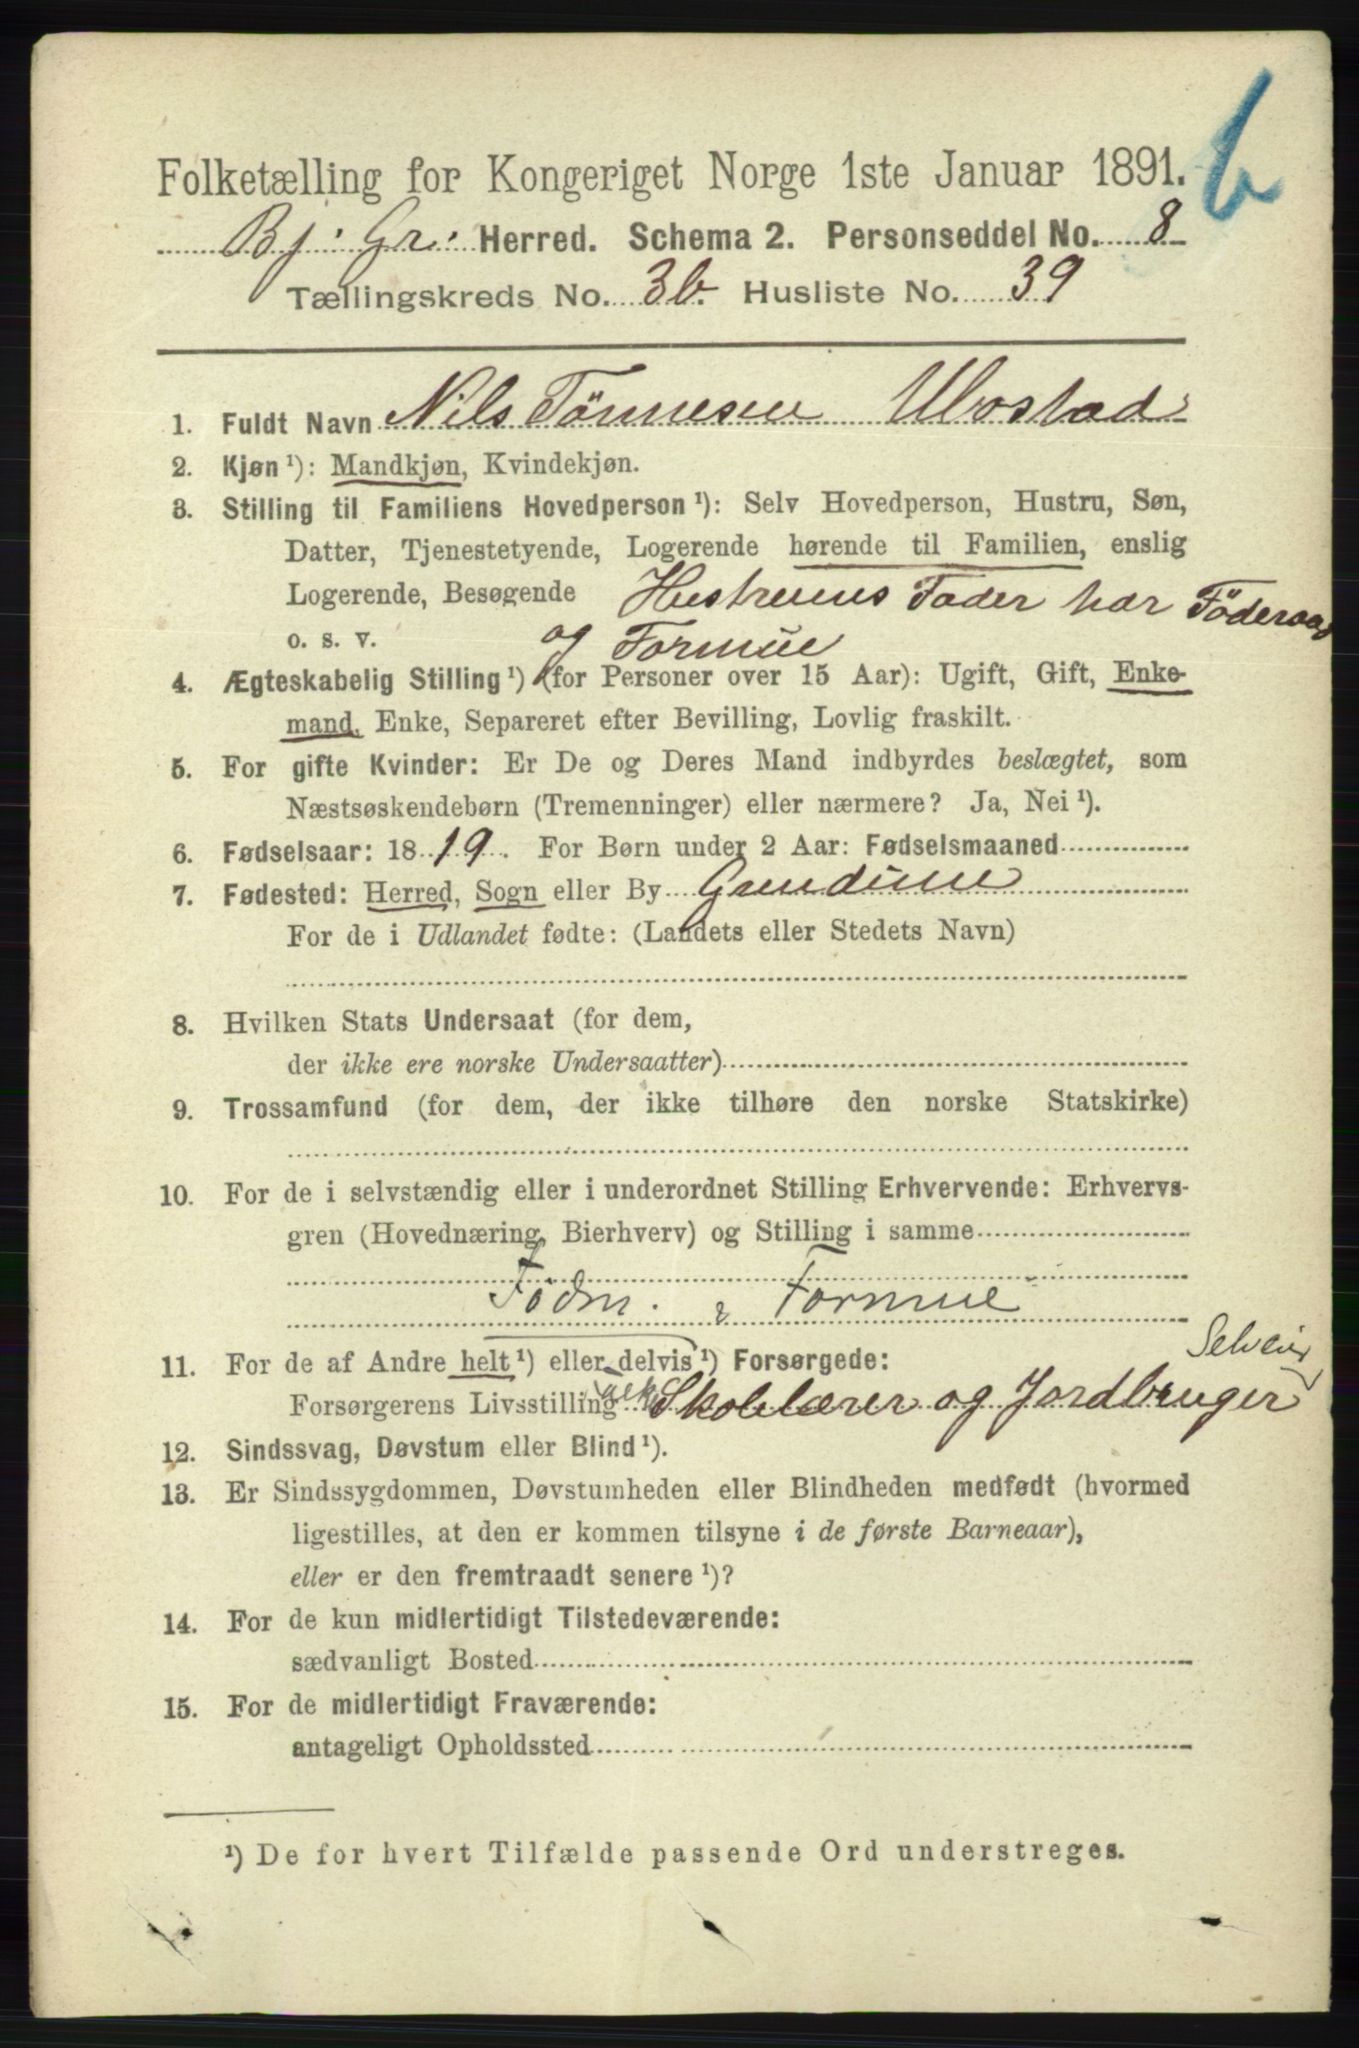 b
Folketælling for Kongeriget Norge 1ste Januar 1891.
Bj. Gr. Herred. Schema 2. Personseddel No. 8
Tællingskreds No. 3b. Husliste No. 39
1. Fuldt Navn Nils Tönnesen Ubostad
2. Kjøn¹): Mandkjøn, Kvindekjøn.
3. Stilling til Familiens Hovedperson¹): Selv Hovedperson, Hustru, Søn,
Datter, Tjenestetyende, Logerende hørende til Familien, enslig
Logerende, Besøgende Hustruens Fader har Föderaad
o. s. v. og Formue
4. Ægteskabelig Stilling¹) (for Personer over 15 Aar): Ugift, Gift, Enke-
mand, Enke, Separeret efter Bevilling, Lovlig fraskilt.
5. For gifte Kvinder: Er De og Deres Mand indbyrdes beslægtet, som
Næstsøskendebørn (Tremenninger) eller nærmere? Ja, Nei¹).
6. Fødselsaar: 1819. For Børn under 2 Aar: Fødselsmaaned
7. Fødested: Herred, Sogn eller By Grindum
For de i Udlandet fødte: (Landets eller Stedets Navn)
8. Hvilken Stats Undersaat (for dem,
der ikke ere norske Undersaatter)
9. Trossamfund (for dem, der ikke tilhøre den norske Statskirke)
10. For de i selvstændig eller i underordnet Stilling Erhvervende: Erhvervs-
gren (Hovednæring, Bierhverv) og Stilling i samme
Födm. & Formue
11. For de af Andre helt¹) eller delvis¹) Forsørgede:
Selveier
Forsørgerens Livsstilling Skolelærer og Jordbruger
12. Sindssvag, Døvstum eller Blind¹).
13. Er Sindssygdommen, Døvstumheden eller Blindheden medfødt (hvormed
ligestilles, at den er kommen tilsyne i de første Barneaar),
eller er den fremtraadt senere¹)?
14. For de kun midlertidigt Tilstedeværende:
sædvanligt Bosted
15. For de midlertidigt Fraværende:
antageligt Opholdssted
¹) De for hvert Tilfælde passende Ord understreges.